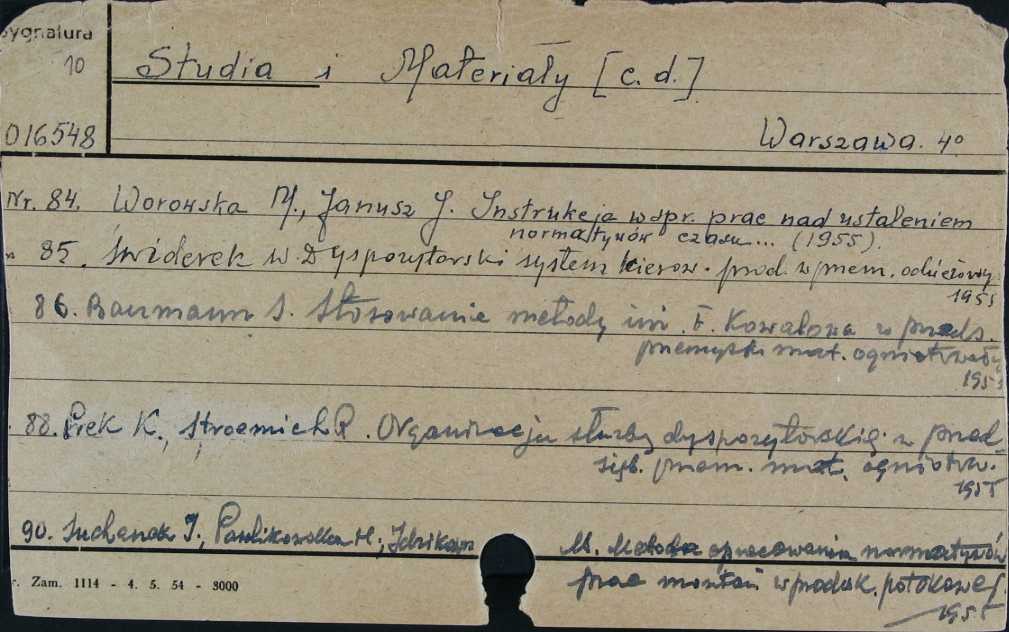 Sygnatura
10 Studia i Materiały [c.d.]
016548 Warszawa. 4º
Nr. 84. Worowska M., Janusz J. Instrukcja wspr. prac nad ustaleniem
normatywów czasu... (1955).
" 85. Świderek W. Dyspozytorski system kierow. prod. w przem. odzieżowy
1955
86. Baurmann S. Stosowanie metody inż. F. Kowalowa w przeds.
przemysłu mat. ogniotrwały
195
88. Prek K., R. Organizacja służby dyspozytorskiej w przed
sięb. przem. mat. ogniotrw.
1955
90. Suchanek J., Pawlikowska H., Idzikows
M. Metoda opracowania normatywów
prac montaż w produk. potokowej
1955
r. Zam. 1114 - 4. 5. 54 - 3000